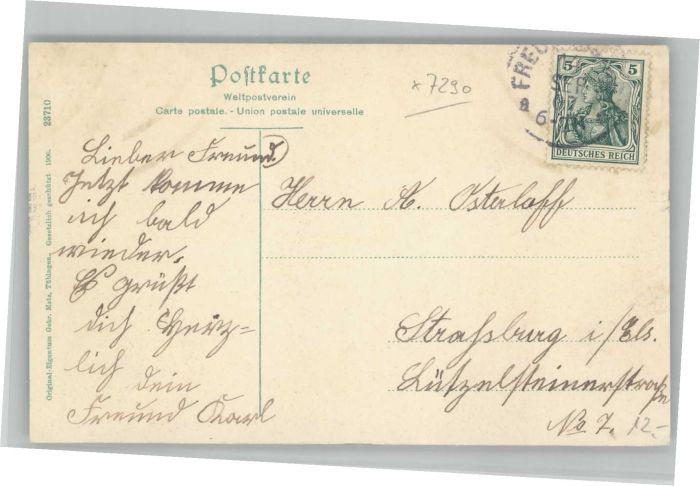 Postkarte
Weltpostverein
Carte postale. - Union postale universelle
23710
Original-Eigentum Gebr. Metz, Tübingen. Gesetzlich geschützt 1906.
*7290
FREU
SEP
a 6-7
5 5
DEUTSCHES REICH
Lieber Freund.
Jetzt komme
ich bald
wieder.
Es grüßt
dich Herz=
lich dein
Freund Karl
Herrn A. Osterloff
Straßburg i/Els.
Lützelsteinerstraße
No 7.
12.-